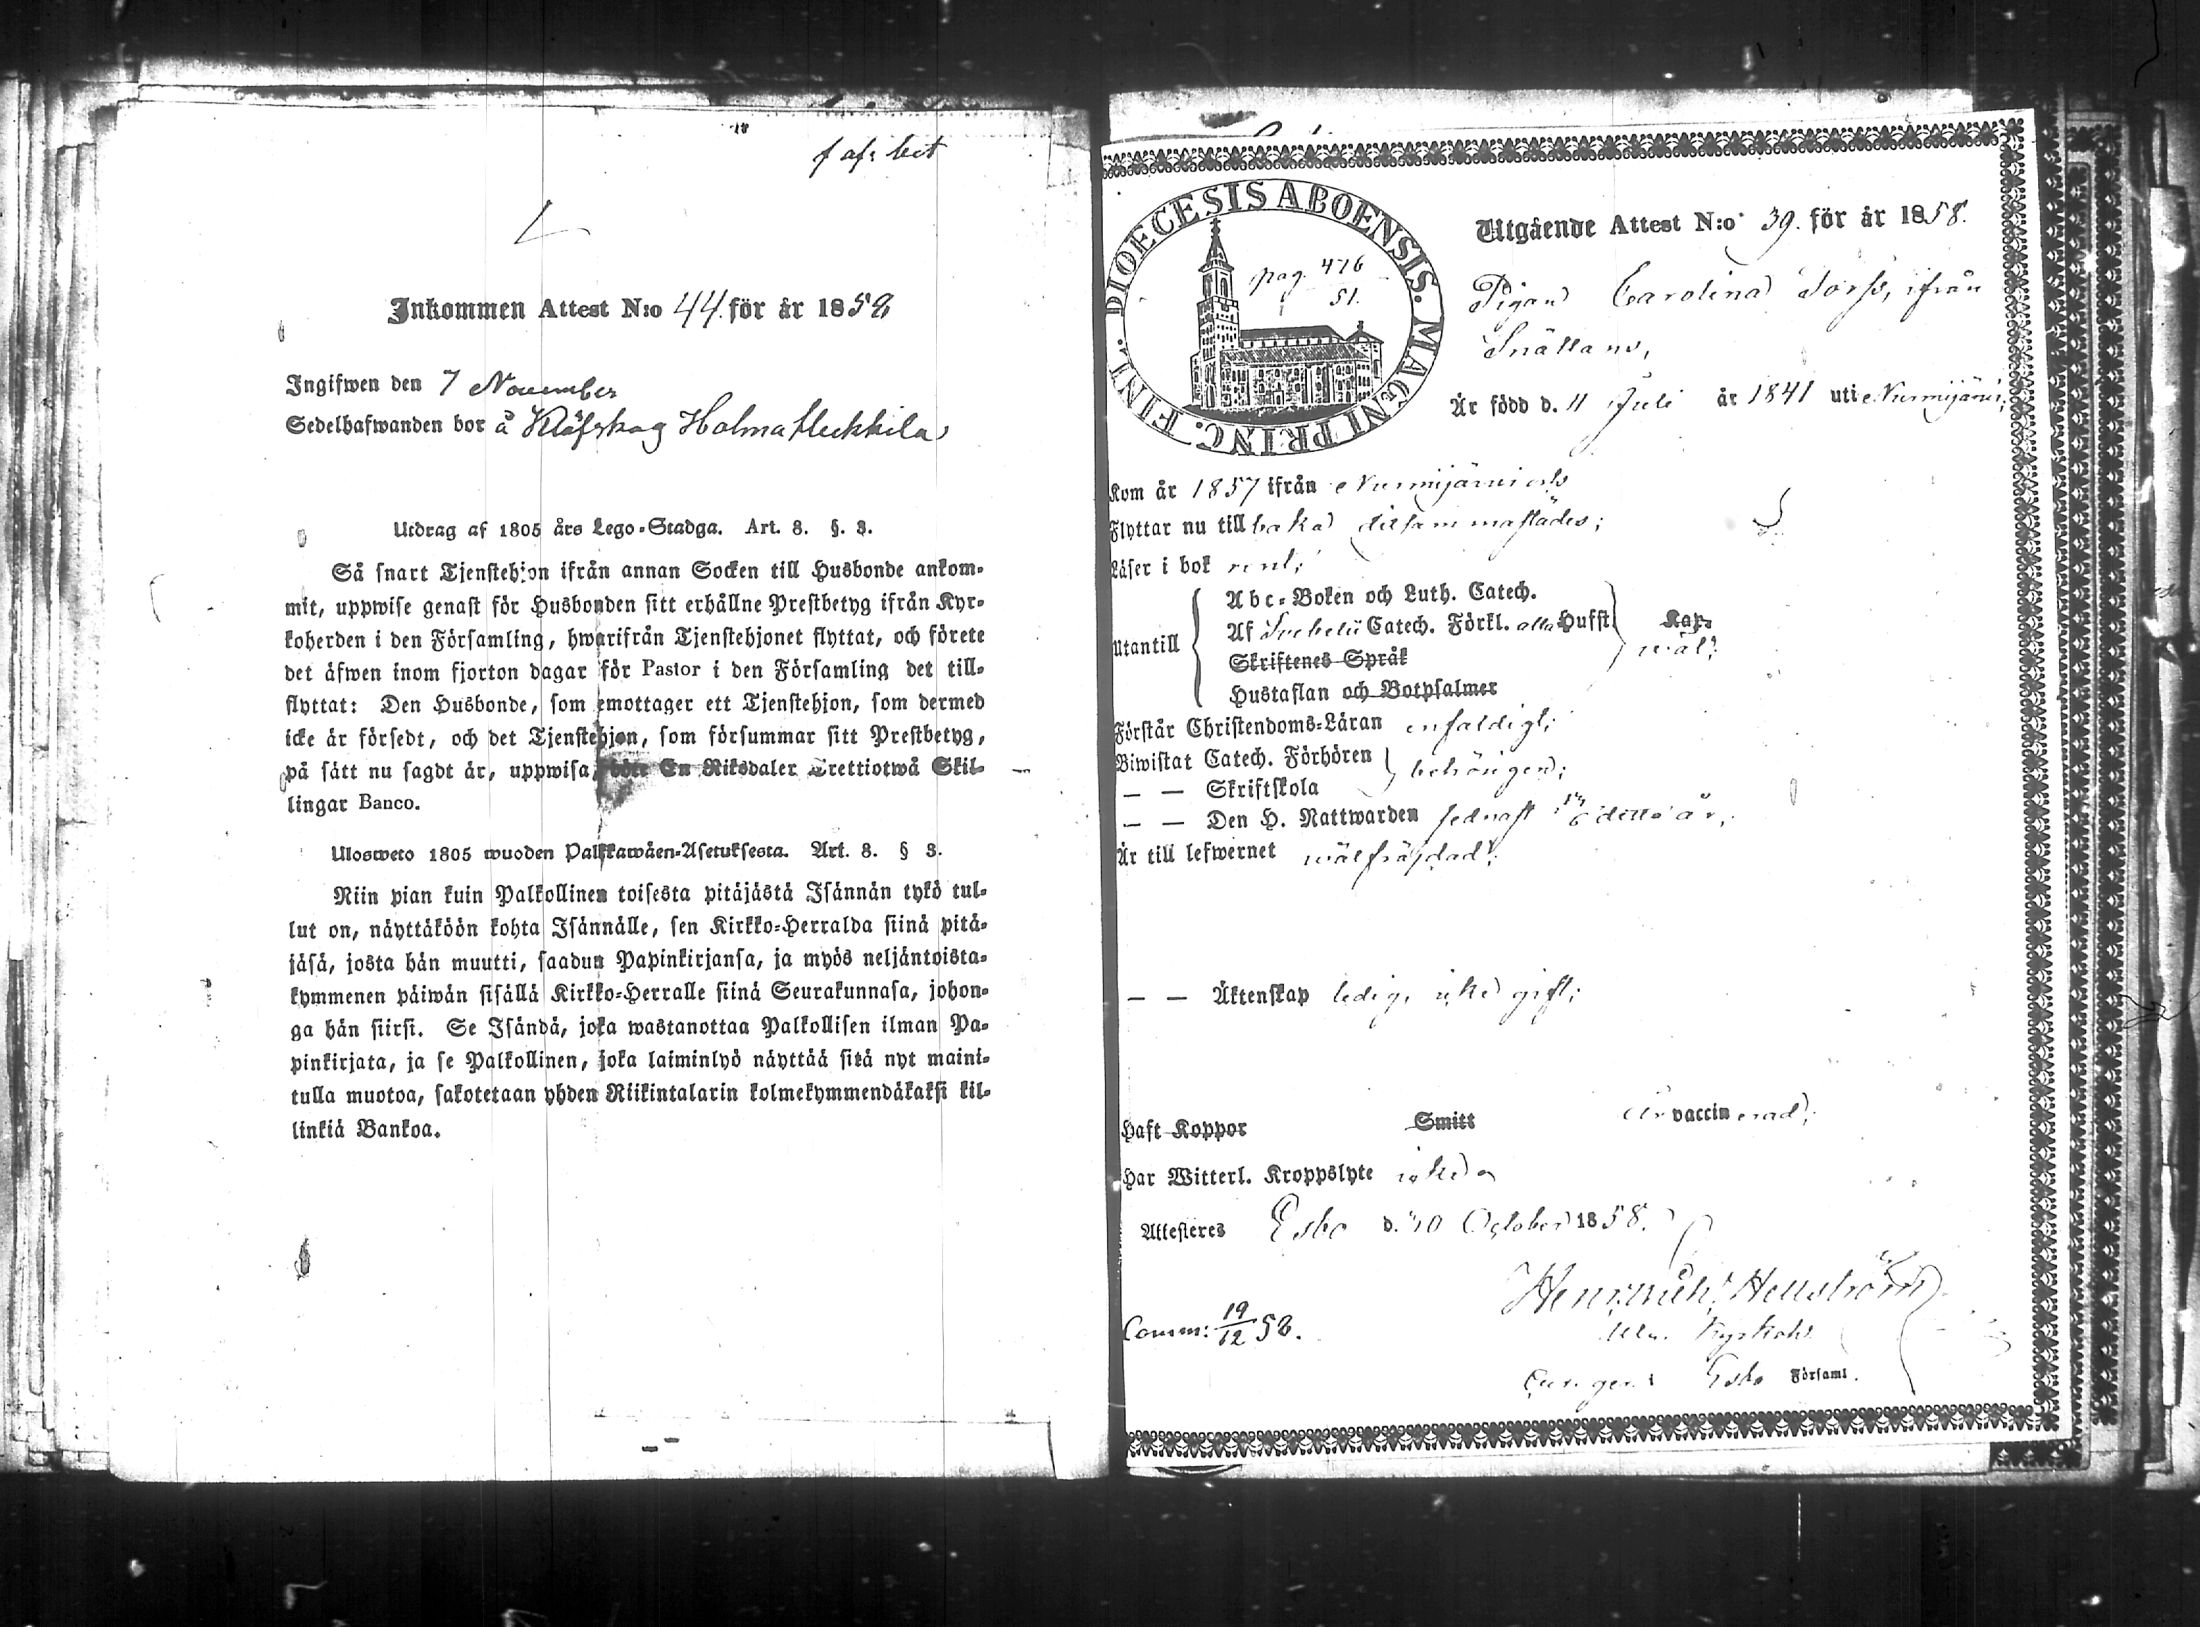 f afsked
Inkommen Attest N:o 44 för år 1858
Ingifwen den 7 November
Sedelhafwanden bor å Klöfskog Holma Heikkilä
Utdrag af 1805 års Lego-Stadga. Art. 8. §. 3.
Så snart Tjenstehjon ifrån annan Socken till Husbonde ankom-
mit, uppwise genast för Husbonden sitt erhållne Prestbetyg ifrån Kyr-
koherden i den Församling, hwarifrån Tjenstehjonet flyttat, och förete
det äfwen inom fjorton dagar för Pastor i den Församling det till-
flyttat: Den Husbonde, som emottager ett Tjenstehjon, som dermed
icke är försedt, och det Tjenstehjon, som försummar sitt Prestbetyg,
på sätt nu sagdt är, uppwisa, böte En Riksdaler Trettiotwå Skil-
lingar Banco.
Ulosweto 1805 wuoden Palkkawäen-Asetuksesta. Art. 8. § 3.
Niin pian kuin Palkollinen toisesta pitäjästä Isännän tykö tul-
lut on, näyttäköön kohta Isännälle, sen Kirkko-Herralda siinä pitä-
jäsä, josta hän muutti, saadun Papinkirjansa, ja myös neljäntoista-
kymmenen päiwän sisällä Kirkko-Herralle siinä Seurakunnasa, johon-
ga hän siirsi. Se Isändä, joka wastanottaa Palkollisen ilman Pa-
pinkirjata, ja se Palkollinen, joka laiminlyö näyttää sitä nyt maini-
tulla muotoa, sakotetaan yhden Riikintalarin kolmekymmendäkaksi kil-
linkiä Bankoa.
DIOECESIS ABOENSIS. MAGNI PRINC. FINL.
pag. 476
51.
Utgående Attest N:o 39. för år 1858.
Pigan Carolina ifrån
Snällans,
Är född d. 11 Juli år 1841 uti Nurmijärvi;
Kom år 1857 ifrån Nurmijärvi
Flyttar nu tillbaka ditsammastädes;
Läser i bok rent;
Utantill
Abc-Boken och Luth. Catech.
Af Svebelii Catech. Förkl. alla Hufst. Kap.
Skriftenes Språk wäl;
Hustaflan och Botpsalmer
Förstår Christendoms-Läran enfaldigt;
Biwistat Catech. Förhören behörigen;
— — Skriftskola
— — Den H. Nattwarden sednast ditto år,
Är till lefwernet wälfräjdad;
— — Äktenskap ledig, icke gift;
Haft Koppor Smitt är vaccinerad;
Har Witterl. Kroppslyte icke.
Attesteres Esbo d. 10 October 1858.
Hellström
Comm: 19/12 58.
Esbo Församl.